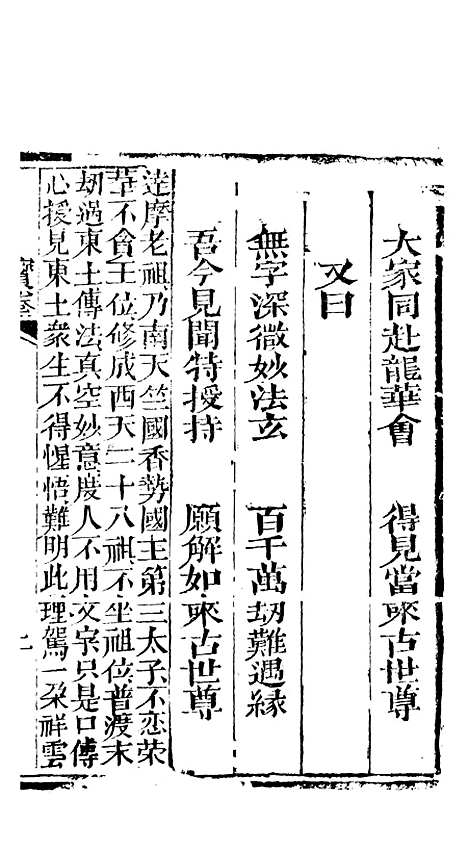 大家同赴龍華會　得見當來古世尊
又曰
無字深微妙法玄　百千萬劫難遇緣
吾今見聞特授持　願解如來古世尊
達摩老祖乃南天竺國香勢國王第三太子不恋荣
華不貪王位修成西天二十八祖不坐祖位普渡末
刼過東土傳法真空妙意度人不用文字只是口傳
心授見東土衆生不得惺悟難明此理駕一朶祥雲
寶卷